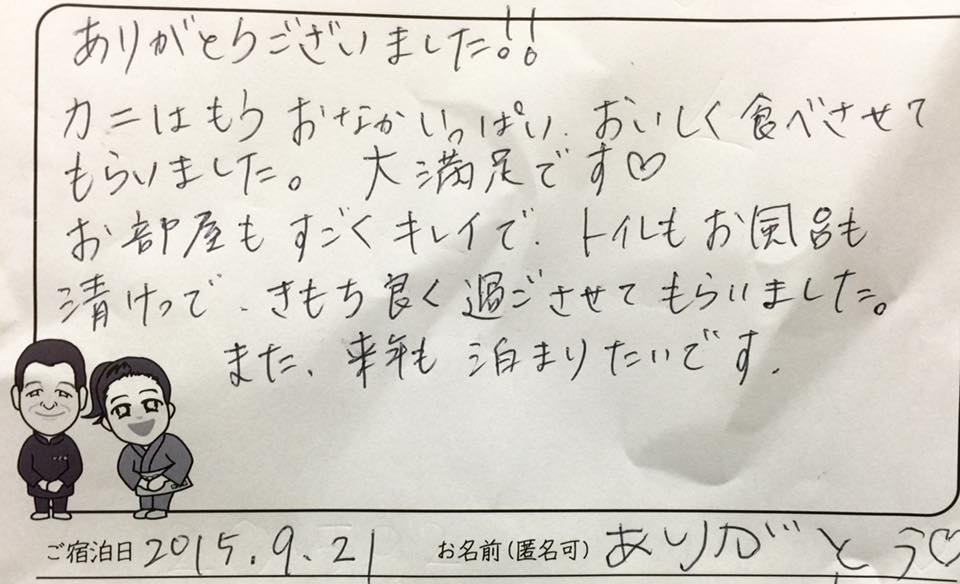 ありがとうございました!!
カニはもう おなかいっぱい、おいしく食べさせて
もらいました。 大満足です♡
お部屋も すごく キレイで、トイレも お風呂も
清けつで、きもち良く 過ごさせて もらいました。
また、来年も 泊まりたいです.
ご宿泊日 2015.9.21 お名前(匿名可) ありがとう♡